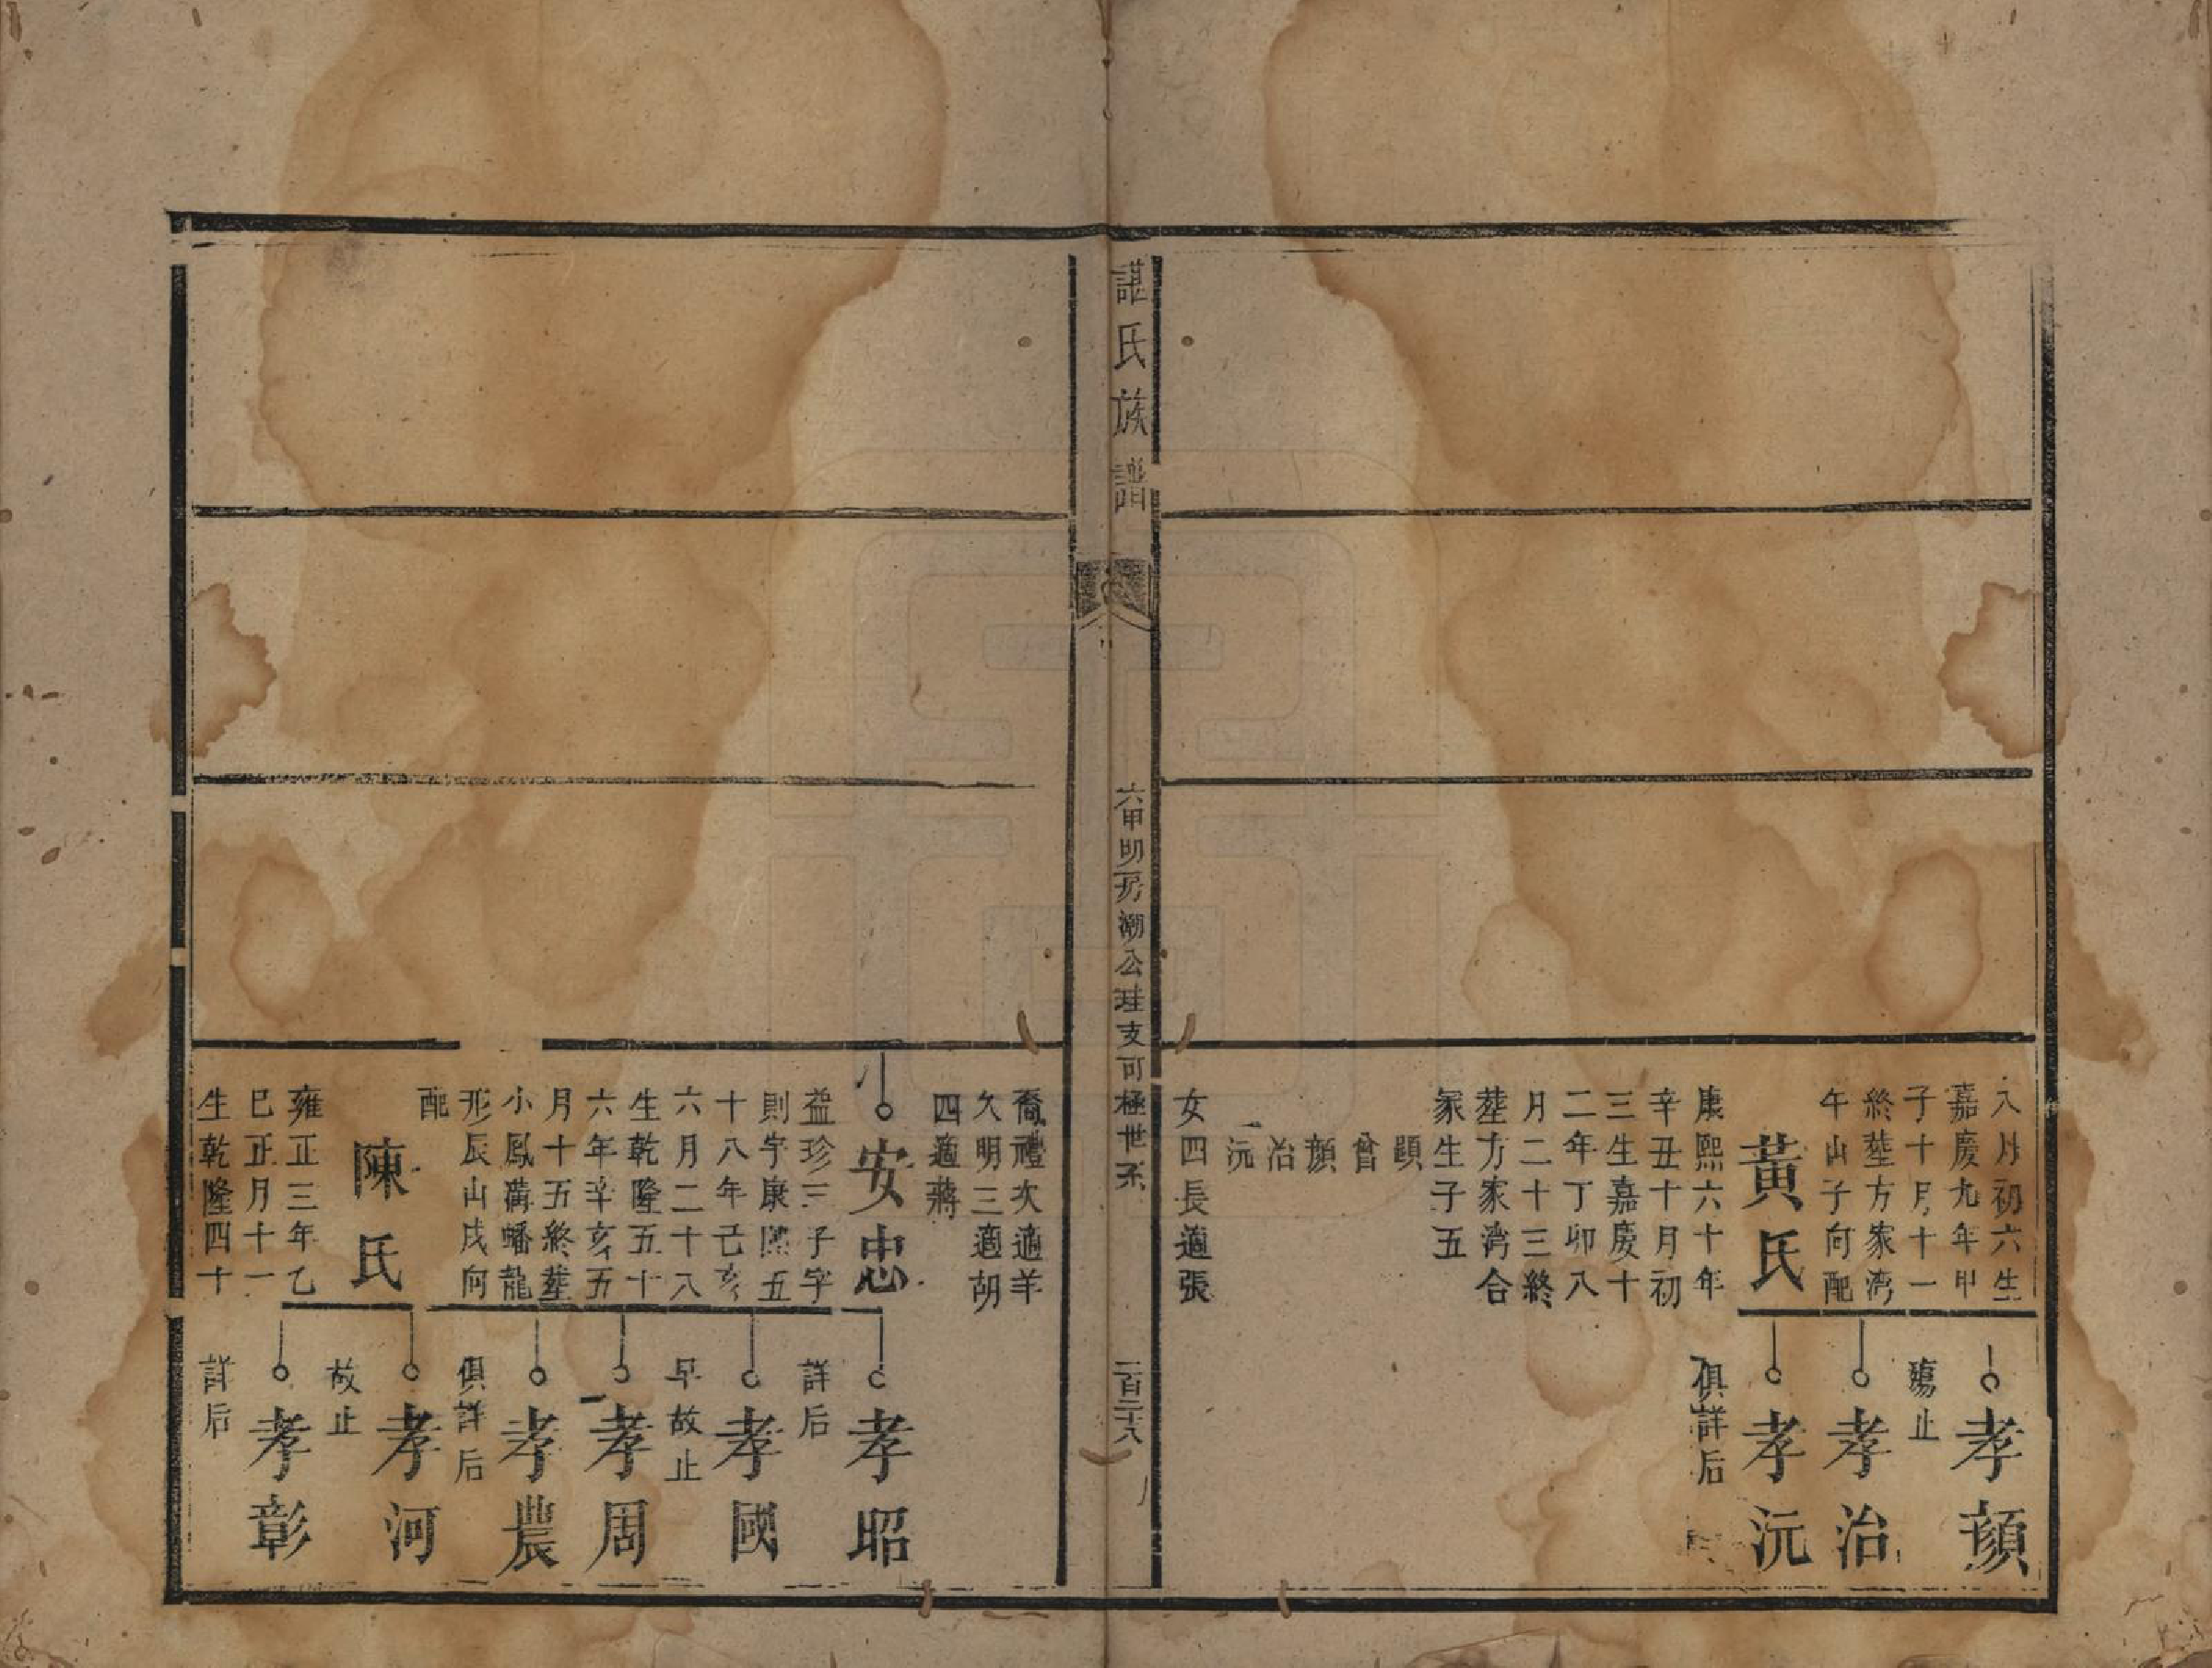 八月初六生
嘉慶九年甲
子十月十一
終塟方家湾
午山子向配
黃氏
康熙六十年
辛丑十月初
三生嘉慶十
二年丁卯八
月二十三終
塟方家湾合
冢生子五
顕
曾
顔
治
沅
女四長適張
孝顔
殤止
孝治
孝沅
俱詳后
諶氏族譜
六甲明房潮公珪支可極世系
一百二十八
喬禮次適羊
久明三適胡
四適蔣
安忠
益珍三子字
則宇康熙五
十八年己亥
六月二十八
生乾隆五十
六年辛亥五
月十五終塟
小鳳溝蟠龍
形辰山戌向
配
陳氏
雍正三年乙
巳正月十一
生乾隆四十
孝昭
詳后
孝國
早故止
孝周
孝農
俱詳后
孝河
故止
孝彰
詳后